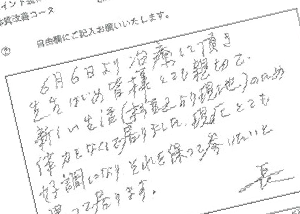 イント
体質改善コース
② 自由欄にご記入お願いいたします。
6月6日より治療して頂き
先生はじめ皆様とても親切で、
新しい生活(より現地)のため
体力をなくして居りましたが、現在とても
好調になりそれを保って参りたいと
思って居ります。